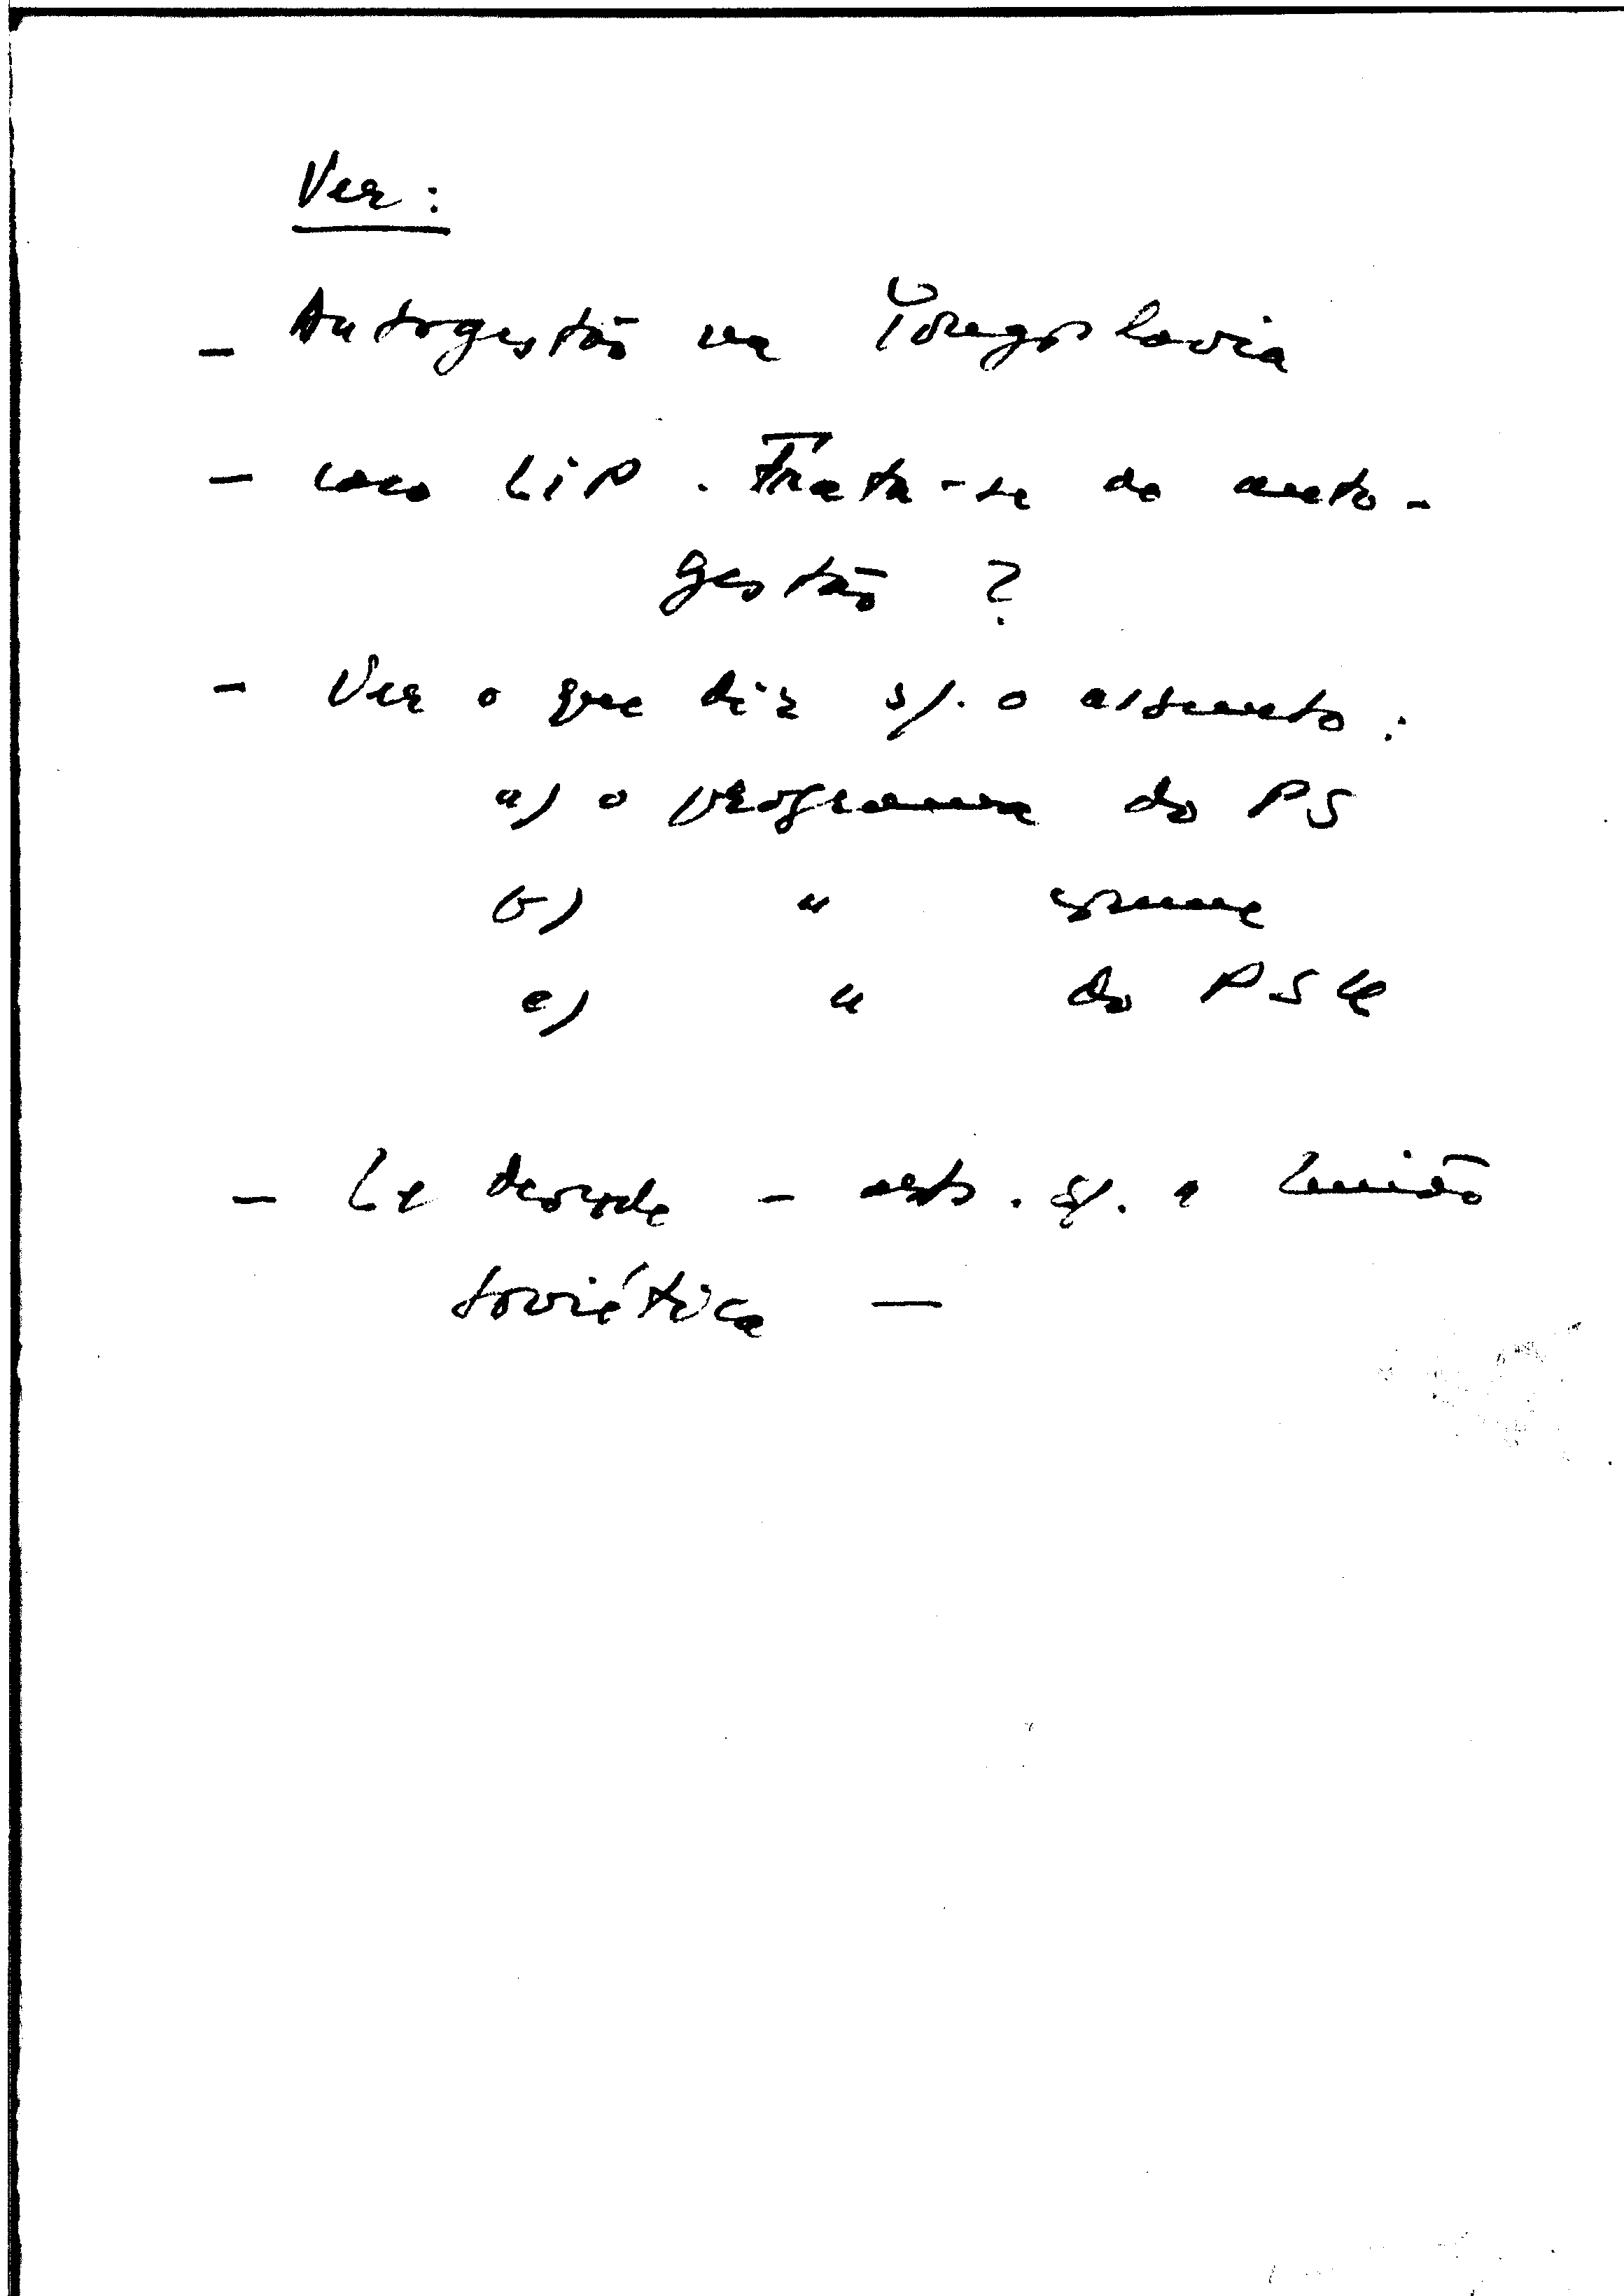 Ver :
- Autogestão na Yougoslavia
- caso LiP . Trata-se de auto-
gestão ?
- Ver o que diz s/. o assunto :
a) o programa do PS
b) " comum
c) " do PSU
- Le Monde - art . s/. a União
Soviética —